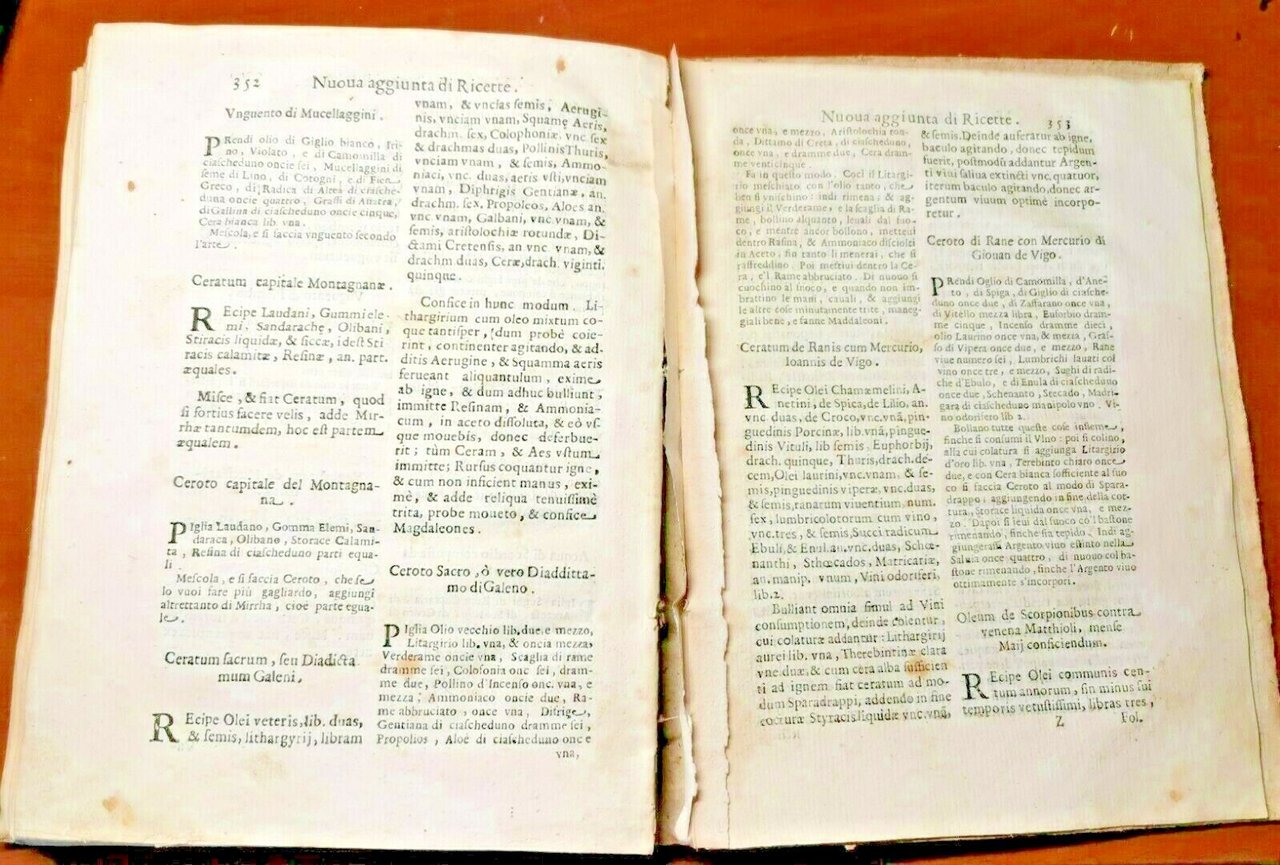 352 Nuoua aggiunta di Ricette.
Vnguento di Mucellaggini.
PRendi olio di Giglio bianco, Iri-
no, Violato, e di Camomilla di
ciascheduno oncie sei, Mucellaggini di
seme di Lino, di Cotogni, e di Fien
Greco, di Radica di Altea di ciasche-
duna oncie quattro, Grassi di Anatra,
di Gallina di ciascheduno oncie cinque,
Cera bianca lib. vna.
Mescola, e si faccia vnguento secondo
l'arte.
Ceratum capitale Montagnanæ.
REcipe Laudani, Gummi ele-
mi, Sandarachę, Olibani,
Stiracis liquidæ, & siccæ, idest Sti
racis calamitæ, Resinæ, an. part.
æquales.
Misce, & fiat Ceratum, quod
si fortius facere velis, adde Mir-
rhæ tantumdem, hoc est partem
æqualem.
Ceroto capitale del Montagna-
na.
PIglia Laudano, Gomma Elemi, San-
daraca, Olibano, Storace Calami-
ta, Resina di ciascheduno parti equa-
li.
Mescola, e si faccia Ceroto, che se
lo vuoi fare più gagliardo, aggiungi
altrettanto di Mirrha, cioè parte egua-
le.
Ceratum sacrum, seu Diadicta
mum Galeni.
REcipe Olei veteris, lib. duas,
& semis, lithargyrij, libram
vnam, & vncias semis, Aerugi-
nis, vnciam vnam, Squamę Aeris,
drachm. sex, Colophoniæ vnc. sex
& drachmas duas, Pollinis Thuris,
vnciam vnam, & semis, Ammo-
niaci, vnc. duas, aeris vsti, vnciam
vnam, Diphrigis Gentianæ, an.
drachm. sex, Propoleos, Aloes an.
vnc. vnam, Galbani, vnc. vnam, &
semis, aristolochiæ rotundæ, Di-
ctami Cretensis, an vnc. vnam, &
drachm duas, Ceræ, drach. viginti.
quinque.
Confice in hunc modum. Li-
thargirium cum oleo mixtum co-
que tantisper, dum probè coie-
rint, continenter agitando, & ad-
ditis Aerugine, & Squamma aeris
ferueant aliquantulum, exime
ab igne, & dum adhuc bulliunt,
immitte Resinam, & Ammonia-
cum, in aceto dissoluta, & eò vs-
que mouebis, donec deferbue-
rit; tùm Ceram, & Aes vstum
immitte; Rursus coquantur igne,
& cum non inficient manus, exi-
mè, & adde reliqua tenuissimè
trita, probe moueto, & confice
Magdaleones.
Ceroto Sacro, ò vero Diadditta-
mo di Galeno.
PIglia Olio vecchio lib. due, e mezzo,
Litargirio lib. vna, & oncia mezza,
Verderame oncie vna, Scaglia di rame
dramme sei, Colofonia onc sei, dram-
me due, Pollino d'Incenso onc. vna, e
mezza, Ammoniaco oncie due, Ra-
me abbruciato, once vna, Difrige,
Gentiana di ciascheduno dramme sei,
Propolios, Aloè di ciascheduno once
vna,
Nuoua aggiunta di Ricette. 353
once vna, e mezzo, Aristolochia ron-
da, Dittamo di Creta, di ciascheduno,
once vna, e dramme due, Cera dram-
me venticinque.
Fa in questo modo. Coci il Litargi-
rio meschiato con l'olio tanto, che
ben si vnischino: indi rimena; & ag-
giungi il Verderame, e la scaglia di Ra-
me, bollino alquanto, leuali dal fuo-
co, e mentre ancor bollono, metteui
dentro Rasina, & Ammoniaco disciolti
in Aceto, fin tanto li menerai, che si
raffreddino. Poi mettiui dentro la Ce-
ra, e'l Rame abbruciato. Di nuouo si
cuochino al fuoco, e quando non im-
brattino le mani, cauali, & aggiungi
le altre cose minutamente trite, maneg-
giali bene, e fanne Maddaleoni.
Ceratum de Ranis cum Mercurio,
Ioannis de Vigo.
REcipe Olei Chamæmelini, A-
netini, de Spica, de Lilio, an.
vnc. duas, de Croco, vnc. vnã, pin-
guedinis Porcinæ, lib. vnã, pingue-
dinis Vituli, lib semis, Euphorbij,
drach. quinque, Thuris, drach. de-
cem, Olei laurini, vnc. vnam. & se-
mis, pinguedinis viperæ, vnc. duas,
& semis, ranarum viuentium. num.
sex, lumbricolotorum cum vino,
vnc. tres, & semis, Succi radicum
Ebuli, & Enul. an. vnc. duas, Schœ-
nanthi, Sthœcados, Matricariæ,
an. manip. vnum, Vini odoriferi,
lib. 2.
Bulliant omnia simul ad Vini
consumptionem, deinde colentur,
cui colaturæ addantur: Lithargirij
aurei lib. vna, Therebintinæ clara
vne duæ, & cum cera alba sufficien
ti ad ignem fiat ceratum ad mo-
dum Sparadrappi, addendo in fine
cocturæ Styracis liquidæ vnc. vnã,
& semis. Deinde auferatur ab igne,
baculo agitando, donec tepidum
fuerit, postmodũ addantur Argen-
ti viui saliua extincti vnc. quatuor,
iterum baculo agitando, donec ar-
gentum viuum optimè incorpo-
retur.
Ceroto di Rane con Mercurio di
Giouan de Vigo.
PRendi Oglio di Camomilla, d'Ane-
to, di Spiga, di Giglio di ciasche-
duno once due, di Zaffarano once vna,
di Vitello mezza libra, Euforbio dram-
me cinque, Incenso dramme dieci,
olio Laurino once vna, & mezza, Gras-
so di Vipera once due, e mezzo, Rane
viue numero sei, Lumbrichi lauati col
vino once tre, e mezzo, Sughi di radi-
che d'Ebulo, e di Enula di ciascheduno
once due, Schenanto, Stecado, Madri-
gara di ciascheduno manipolo vno. Vi-
no odorifero lib 2.
Boliano tutte queste cose insieme,
finche si consumi il Vino: poi si colino,
alla cui colatura si aggiunga Litargizio
d'oro lib. vna, Terebinto chiaro once
due, e con Cera bianca sofficiente al fuo
co si faccia Ceroto al modo di Spara-
drappo; aggiungendo in fine della cot-
tura, Storace liquida once vna, e mez-
zo. Dapoi si leui dal fuoco co'l bastone
rimenando, finche sia tepido. Indi ag-
giungerasi Argento viuo estinto nella
Saliua once quattro, di nuouo col ba-
stone rimenando, finche l'Argento viuo
ottimamente s'incorpori.
Oleum de Scorpionibus contra
venena Matthioli, mense
Maij conficiendum.
REcipe Olei communis cen-
tum annorum, sin minus sui
temporis vetustissimi, libras tres,
Z Fol.